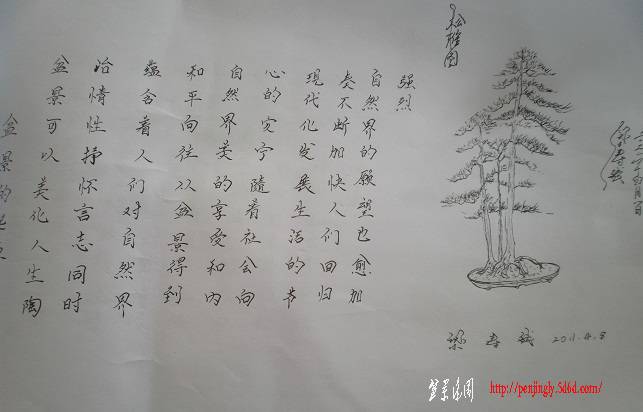 盆景可以美化人生陶
冶情性抒怀言志同时
蕴含着人们对自然界
和平向往以盆景得到
自然界美的享受和内
心的安宁随着社会向
现代化发展生活的节
奏不断加快人们回归
自然界的愿望也愈加
强烈
2011.4.8
盆景乐园
http://penjingly.5d6d.com/